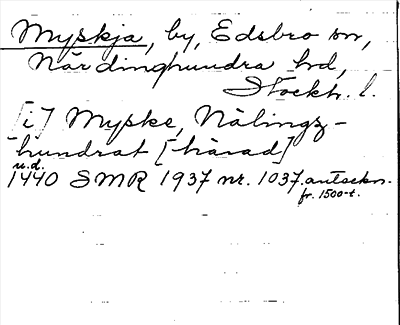 Myskja, by, Edsbro sn,
Närdinghundra hd,
Stockh. l.
[i] Myske, Nälingz-
hundrat [-härad]
u.d.
1440 SMR 1937 nr. 1037. anteckn.
fr. 1500-t.